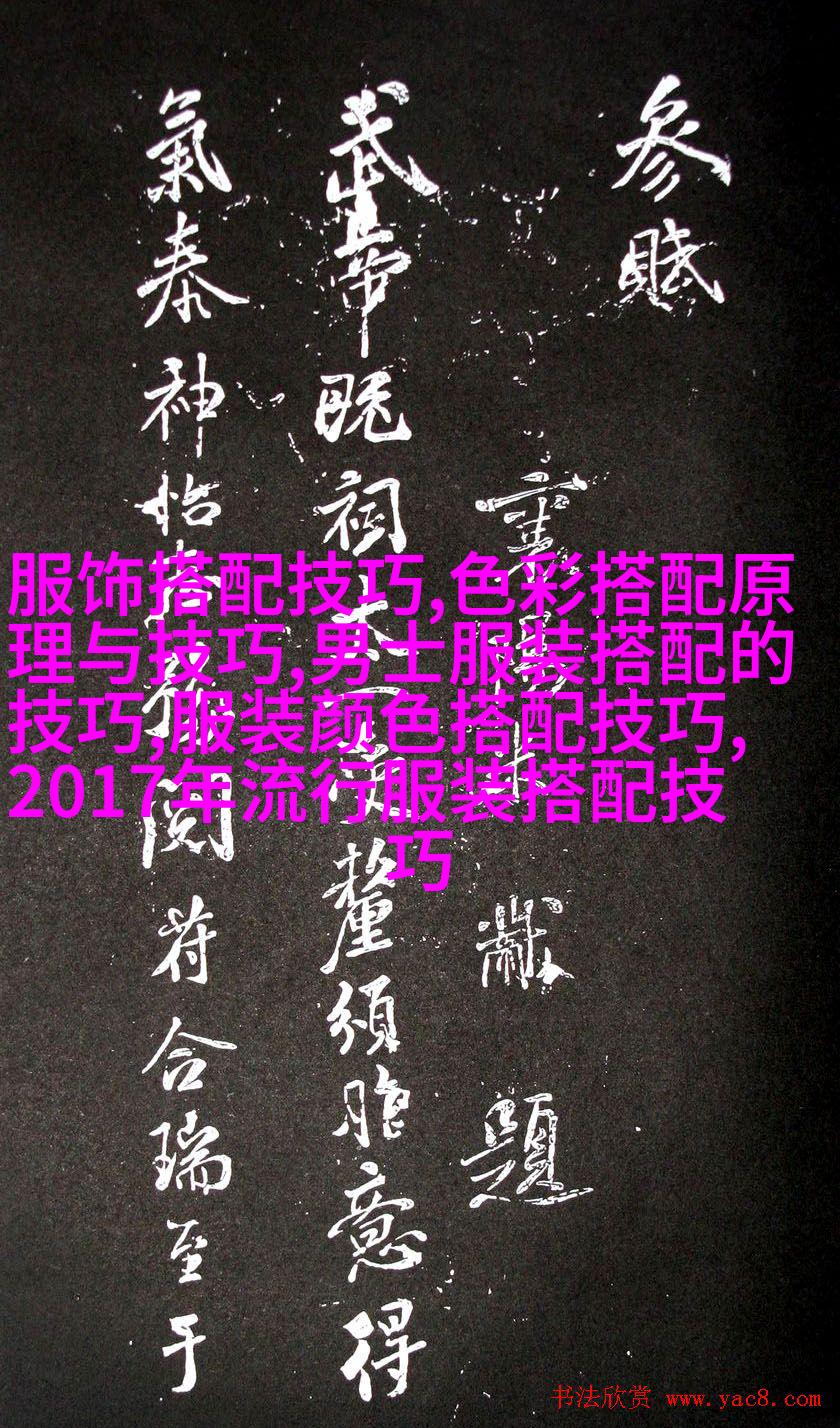 參賦
襄陽米黻題
武帝既祠太一釐頒胙意得
氣泰神怡閱符合瑞至于
服饰搭配技巧,色彩搭配原
理与技巧,男士服装搭配的
技巧,服装颜色搭配技巧,
2017年流行服装搭配技
巧
书法欣赏 www.yac8.com